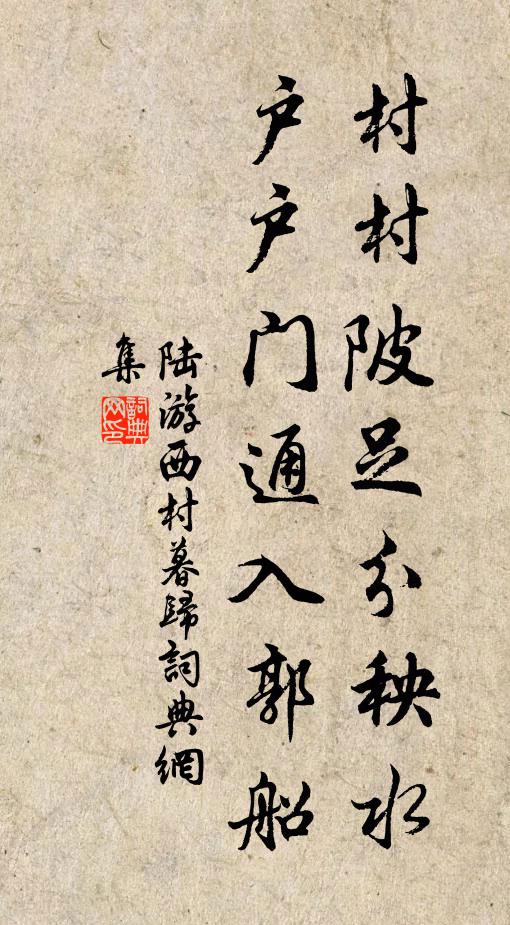 村村陂足分秧水
户户门通入郭船
陆游西村暮歸詞典網
集
詞典网印